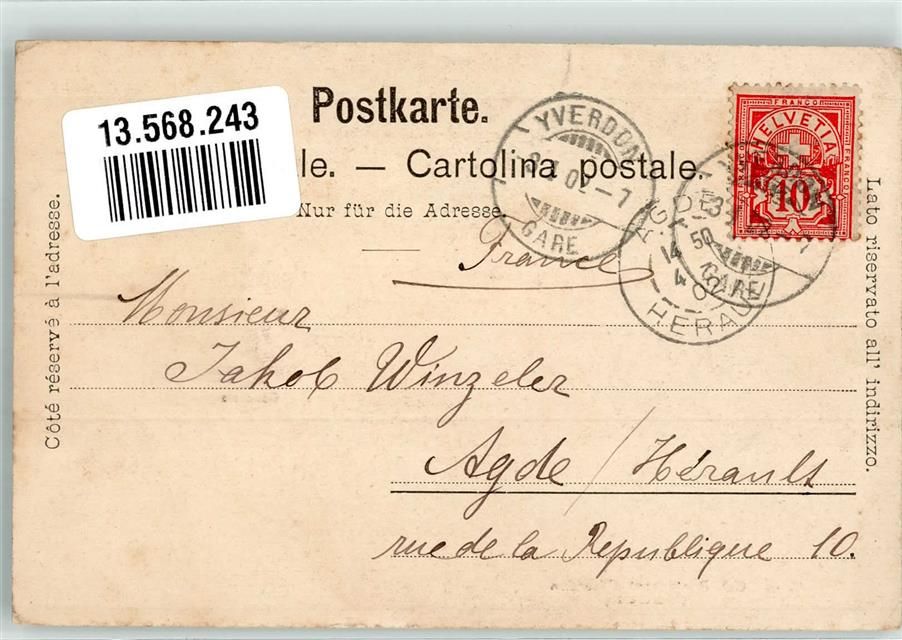 13.568.243
Postkarte.
le. — Cartolina postale.
Nur für die Adresse.
Côté réservé à l'adresse.
Lato riservato all' indirizzo.
FRANCO
HELVETIA
FRANCO
FRANCO
10
YVERDON
GARE
AGDE
14
4 02
HERAULT
GARE
France
Monsieur
Jakob Winzeler
Agde / Hérault
rue de la Republique 10.